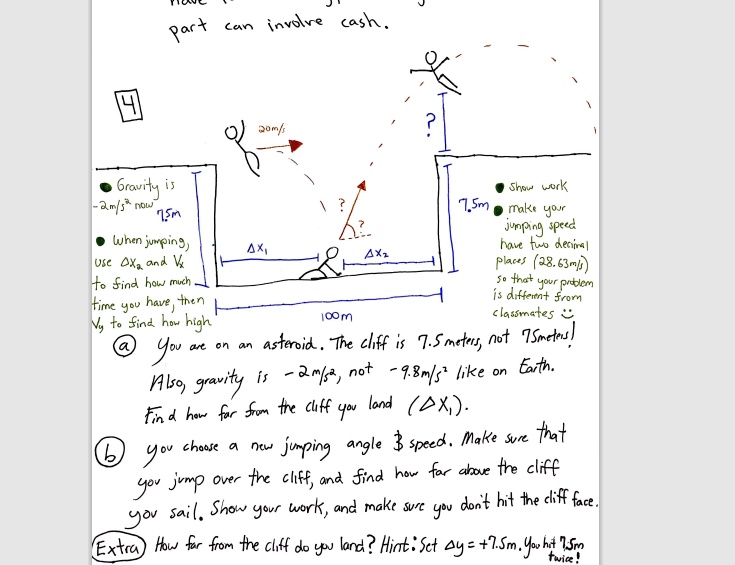 part can involve cash.
4
20m/s
?
Gravity is
-2m/s² now
7.5m
When jumping,
use Δx₂ and Vx
to find how much
time you have, then
Vy to find how high
Δx₁
?
?
Δx₂
100m
7.5m
Show work
make your
jumping speed
have two decimal
places (28.63m/s)
so that your problem
is different from
classmates
(a) You are on an asteroid. The cliff is 7.5meters, not 75meters!
Also, gravity is -2m/s², not -9.8m/s² like on Earth.
Find how far from the cliff you land (Δx₁).
(b) you choose a new jumping angle & speed. Make sure that
you jump over the cliff, and find how far above the cliff
you sail. Show your work, and make sure you don't hit the cliff face.
(Extra) How far from the cliff do you land? Hint: Set Δy = +7.5m. You hit 7.5m
twice!